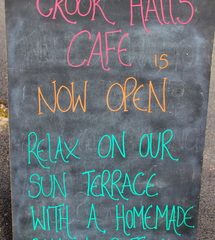 CROOK HALL'S
CAFE IS
NOW OPEN
RELAX ON OUR
SUN TERRACE
WITH A HOMEMADE